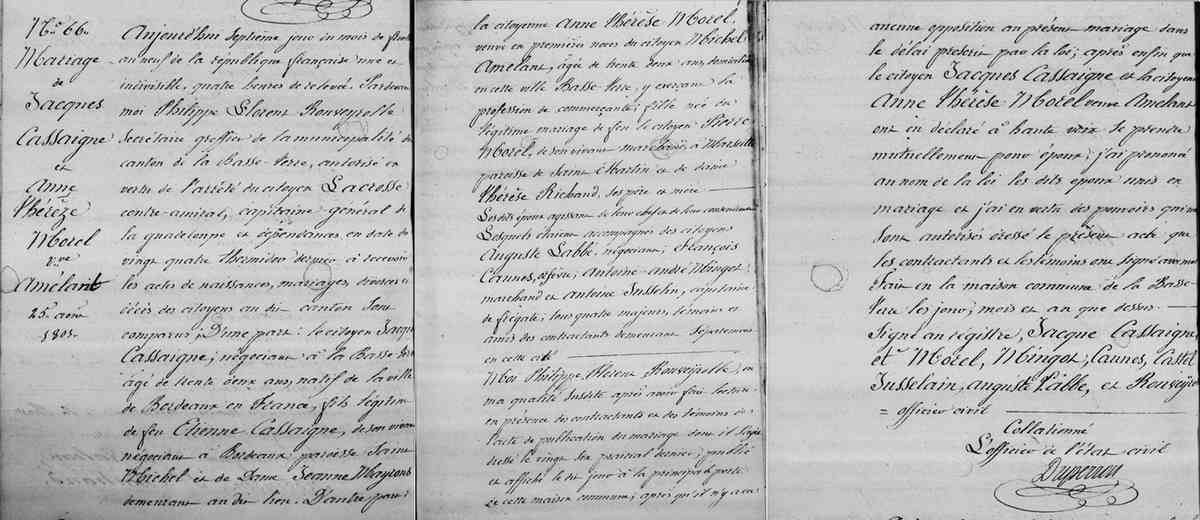 N.o 66.
Mariage
de
Jacques
Cassaigne
et
Anne
Thérèze
Morel
v.ve
Amélant
25. aoû
1801.
Aujourd'hui Septième jour du mois de
an neuf de la république française une et
indivisible, quatre heures de relevée. Pardevant
moi Philippe Florent Rouveyrolle
Secrétaire greffier de la municipalité du
canton de la Basse-terre, autorisé en
vertu de l'arrêté du citoyen Lacrosse
contre-amiral, capitaine général de
la guadeloupe et dépendances en date du
vingt quatre thermidor dernier à recevoir
les actes de naissances, mariages, divorces et
décès des citoyens au dit canton sont
comparus; D'une part: le citoyen Jacques
Cassaigne, négociant à la Basse terre
âgé de trente deux ans, natif de la ville
de Bordeaux en France, fils légitime
de feu Etienne Cassaigne, de son vivant
négociant à Bordeaux paroisse Saint
Michel et de Dame Jeanne Mayrons
demeurant au dit lieu. D'autre part:
la citoyenne Anne Thérèse Morel,
veuve en premières noces du citoyen Michel
Amelant, âgée de trente deux ans, domiciliée
en cette ville Basse-terre, y exerçant la
profession de commerçante; fille née du
légitime mariage de feu le citoyen Pierre
Morel, de son vivant à Marseille
paroisse de Saint Martin et de dame
Thérèse Richaud, ses père et mère
Les dits époux agissant de leur chef et de leur consentement
Lesquels étaient accompagnés des citoyens
Auguste Labbé, négociant; François
Caunes, ; Antoine-andré Mingot,
marchand et antoine Jusselin, capitaine
de frégate, tous quatre majeurs, témoins et
amis des contractants demeurant séparément
en cette cité
Moi Philippe, Florent Rouveyrolle, en
ma qualité susdite après avoir fait lecture
en présence des contractants et des témoins de
l'acte de publication du mariage dont il s'agit
dressé le vingt sept prairial dernier; publié
et affiché le dit jour à la principale porte
de cette maison commune; après qu'il n'y a eu
aucune opposition au présent mariage dans
le délai prescrit par la loi; après enfin que
le citoyen Jacques Cassaigne et la citoyenne
Anne Thérèse Morel veuve Amelant
ont eu déclaré à haute voix se prendre
mutuellement pour époux; j'ai prononcé
au nom de la loi les dits époux unis en
mariage et j'ai en vertu des pouvoirs qui me
sont autorisés dressé le présent acte que
les contractants et les témoins ont signé avec moi
Fait en la maison commune de la Basse-
terre les jour, mois et an que dessus.
Signé au régistre, Jacque Cassaigne,
et Morel, Mingot, Caunes, Castel,
Jusselain, auguste Labbe, et Rouveyrolle
= officier civil
Collationné
L'officier de l'état civil